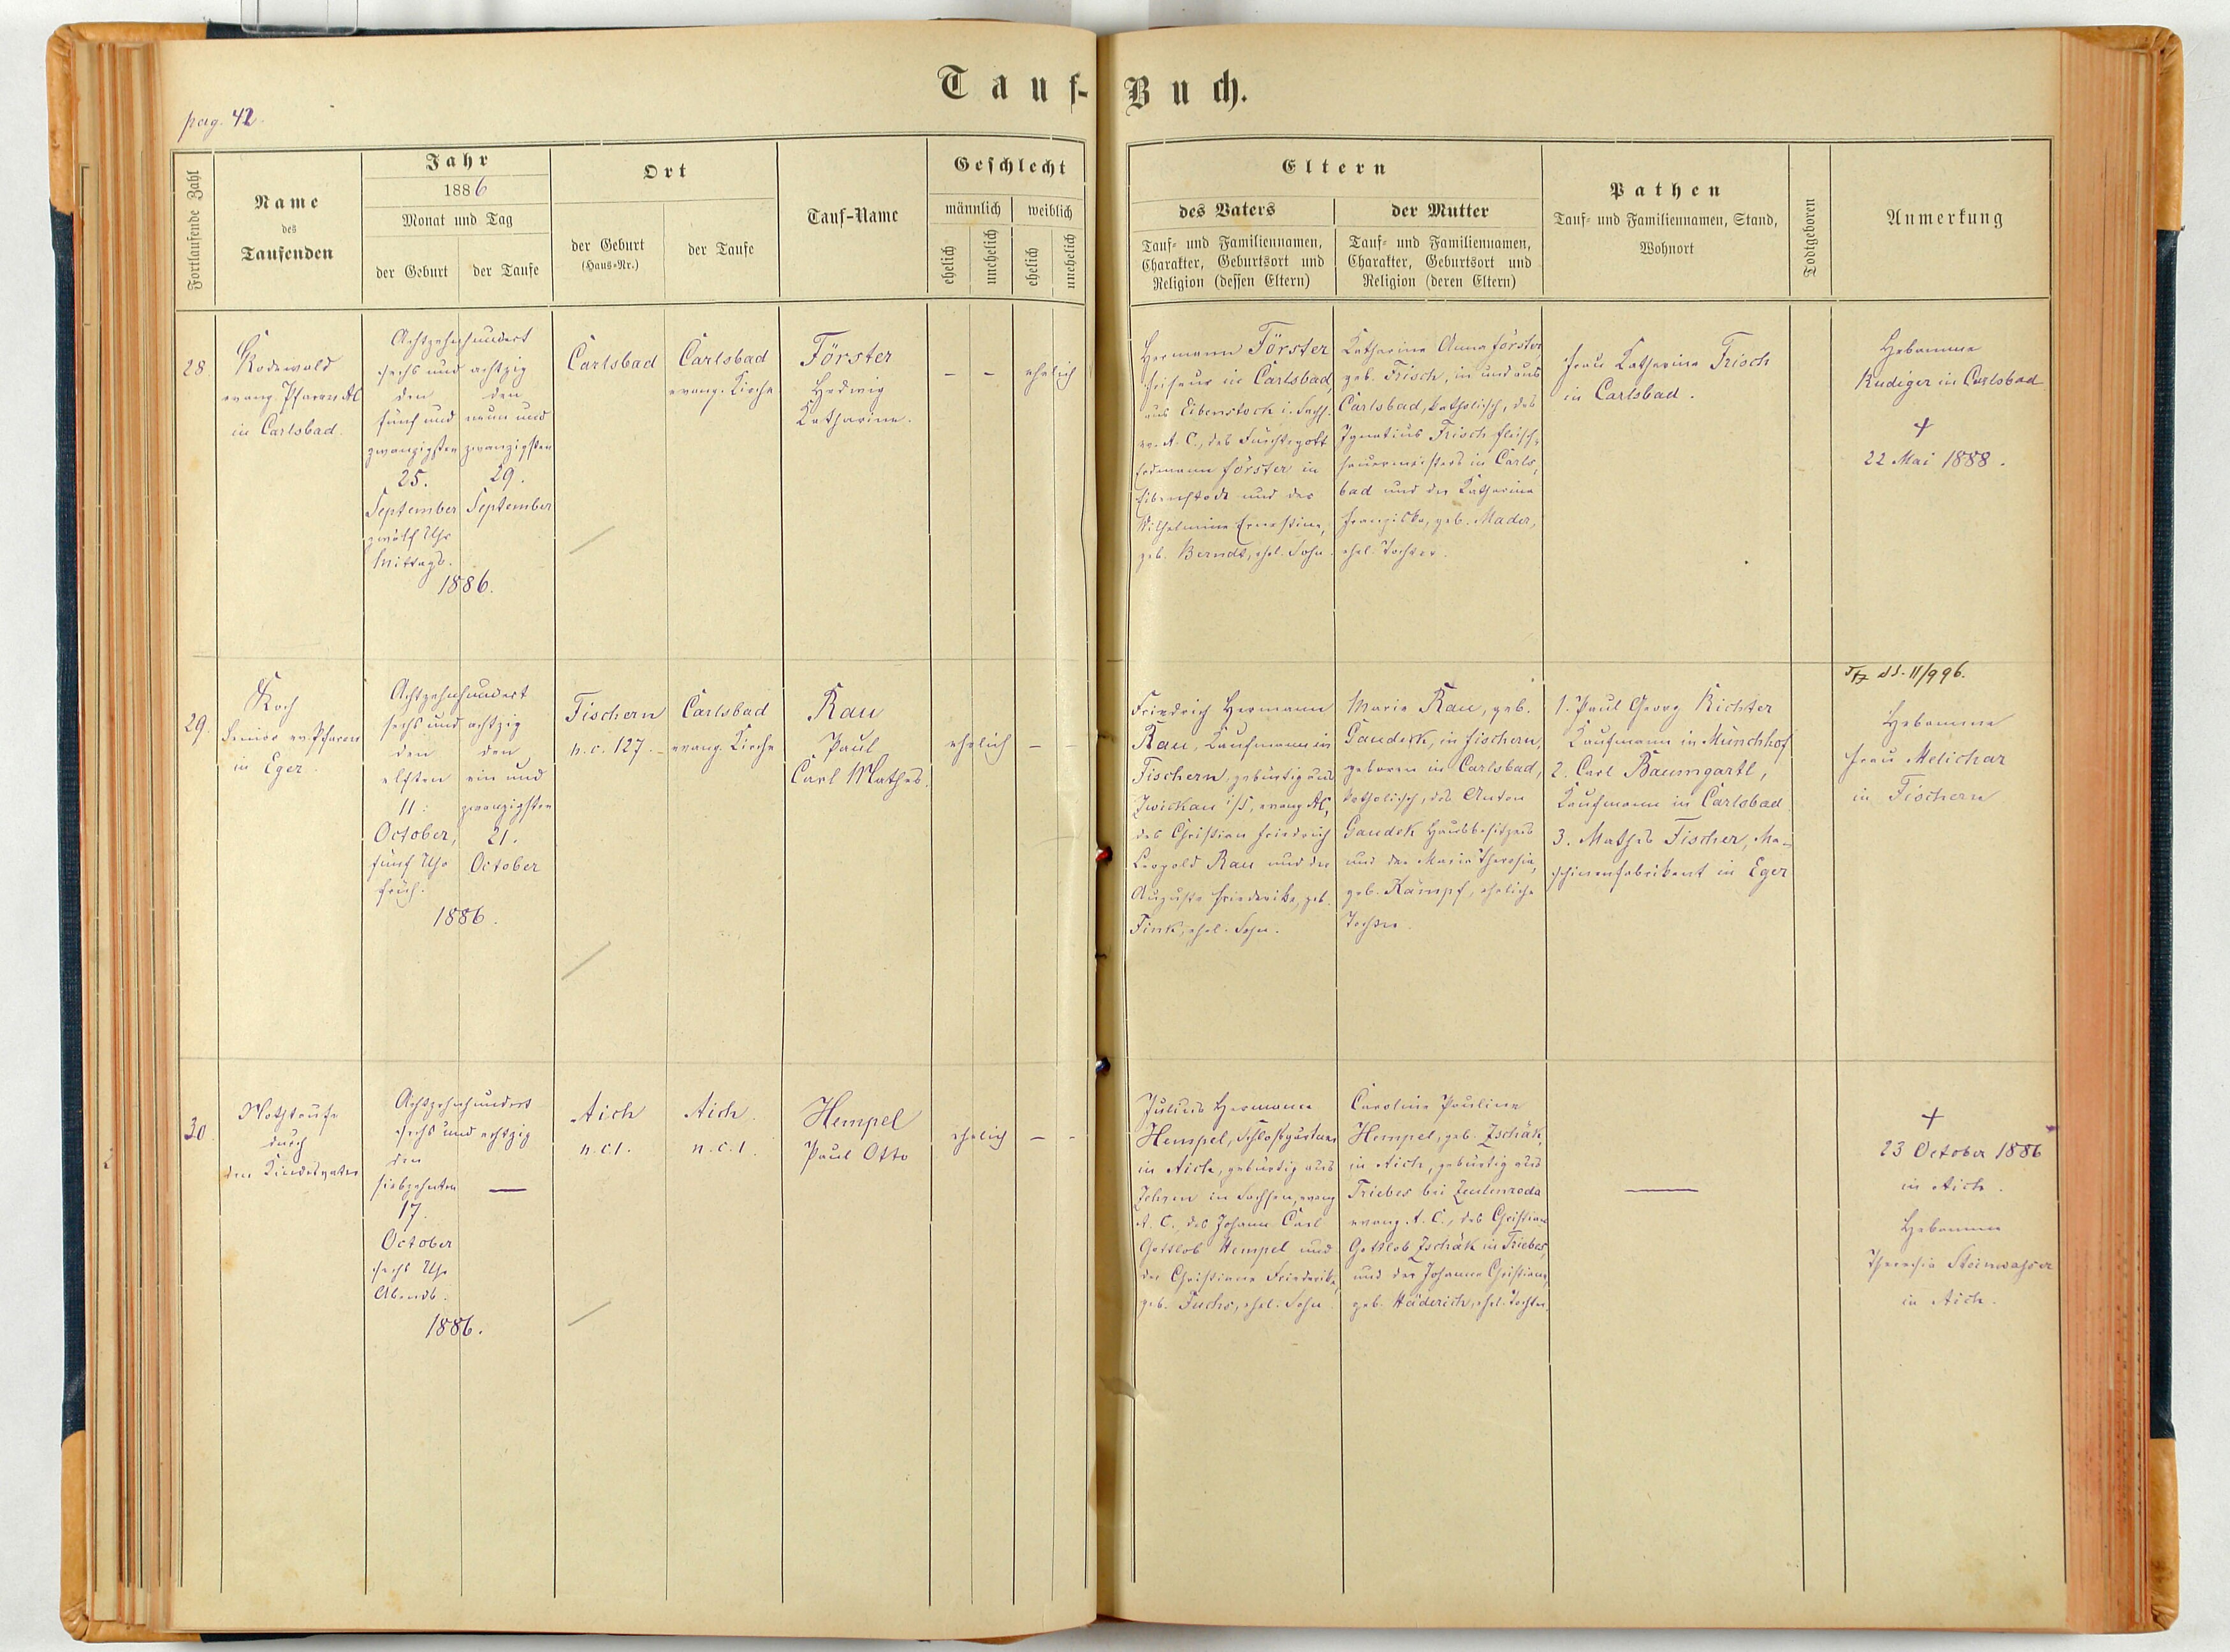 Tauf-Buch.
pag. 42.
Fortlaufende Zahl
Name
des
Taufenden
Jahr
1886
Monat und Tag
der Geburt
der Taufe
Ort
der Geburt
(Haus-Nr.)
der Taufe
Tauf-Name
Geschlecht
männlich
weiblich
ehelich
unehelich
ehelich
unehelich
Eltern
des Vaters
Tauf- und Familiennamen,
Charakter, Geburtsort und
Religion (dessen Eltern)
der Mutter
Tauf- und Familiennamen,
Charakter, Geburtsort und
Religion (deren Eltern)
Pathen
Tauf- und Familiennamen, Stand,
Wohnort
Todtgeboren
Anmerkung
28
Rodewald
evang. Pfarrer AC
in Carlsbad.
Achtzehnhundert
sechs und achtzig
den
fünf und
zwanzigsten
25.
September
zwölf Uhr
Mittags.
den
neun und
zwanzigsten
29.
September
1886.
Carlsbad
Carlsbad
evang. Kirche
Förster
Hedwig
Katharina.
– –
ehelich
Hermann Förster
Friseur in Carlsbad,
aus Eibenstock i. Sachs.
ev. A. C., des Fürchtegott
Erdmann Förster in
Eibenstock und der
Wilhelmine Ernestine,
geb. Berndt, ehel. Sohn.
Katharina Anna Förster,
geb. Frisch, in und aus
Carlsbad, katholisch, des
Ignatius Frisch Fleisch-
hauermeisters in Carls-
bad und der Katharina
Franziska, geb. Mader,
ehel. Tochter.
Frau Katharina Frisch
in Carlsbad.
Hebamme
Rudiger in Carlsbad
†
22 Mai 1888.
29.
Koch
Senior ev. Pfarrer
in Eger.
Achtzehnhundert
sechs und achtzig
den
elften
11.
October,
fünf Uhr
früh.
den
ein und
zwanzigsten
21.
October
1886.
Fischern
n.c. 127.
Carlsbad
evang. Kirche
Rau
Paul
Carl Mathes.
ehelich
– –
Friedrich Hermann
Rau, Kaufmann in
Fischern, gebürtig aus
Zwickau i/S, evang AC,
des Christian Friedrich
Leopold Rau und der
Auguste Friederike, geb.
Fink, ehel. Sohn.
Marie Rau, geb.
Gaudek, in Fischern,
geboren in Carlsbad,
katholisch, des Anton
Gaudek Hausbesitzers
und der Maria Theresia,
geb. Kämpf, eheliche
Tochter.
1. Paul Georg Richter
Kaufmann in Münchhof
2. Carl Baumgartl,
Kaufmann in Carlsbad.
3. Mathes Fischer, Ma-
schinenfabrikant in Eger
11/996.
Hebamme
Frau Melichar
in Fischern
30
Nothtaufe
durch
den Kindesvater
Achtzehnhundert
sechs und achtzig
den
siebzehnten
17.
October
sechs Uhr
Abends.
—
1886.
Aich
n.c.1.
Aich.
n.c.1.
Hempel
Paul Otto
ehelich
– –
Julius Hermann
Hempel, Schloßgärtner
in Aich, gebürtig aus
Zehren in Sachsen, evang
A. C., des Johann Carl
Gottlob Hempel und
der Christiane Friederike,
geb. Fuchs, ehel. Sohn.
Caroline Pauline
Hempel, geb. Zschäk,
in Aich, gebürtig aus
Triebes bei Zeulenroda
evang. A. C., des Christian
Gottlob Zschäk in Triebes,
und der Johanne Christiane,
geb. Häderich, ehel. Tochter.
—
†
23 October 1886
in Aich.
Hebamme
Theresia Steinwasser
in Aich.